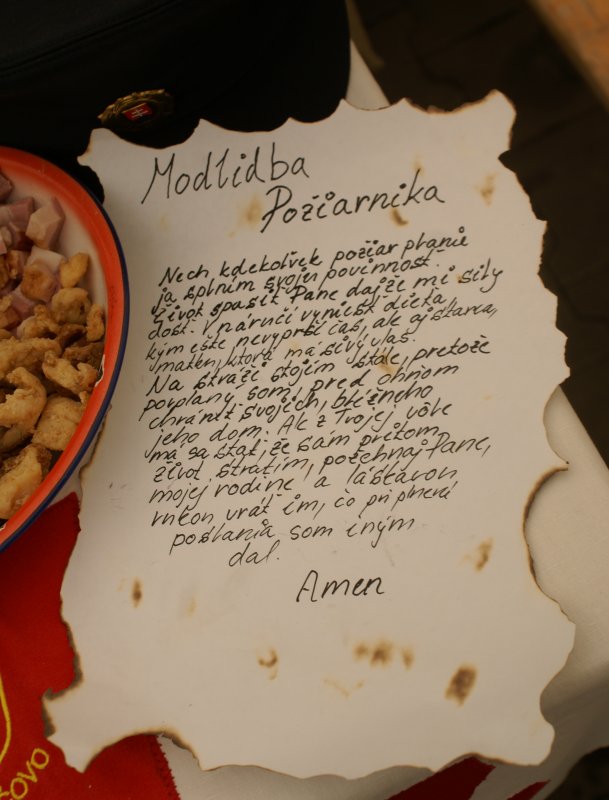 Modlidba
Požiarnika
Nech, kdekoľvek požiar planie
ja splním svojen povinnosť.
Život spasiť Pane dajže mi sily
dosť. V náručí vyniesť dieťa
kým ešte nevyprší čas, ale aj starca,
mater, ktorá má sivý vlas.
Na stráži stojím stále, pretože
porplany som, pred ohnom
chrániť svojich, bližneho
jeho dom. Ak z Tvojej vôle
má sa stať, že sám pritom
život stratím, požehnaj Pane,
mojej rodine a láskavou
rukou vráť im, čo pri plnení
poslania som iným
dal.
Amen
ovo